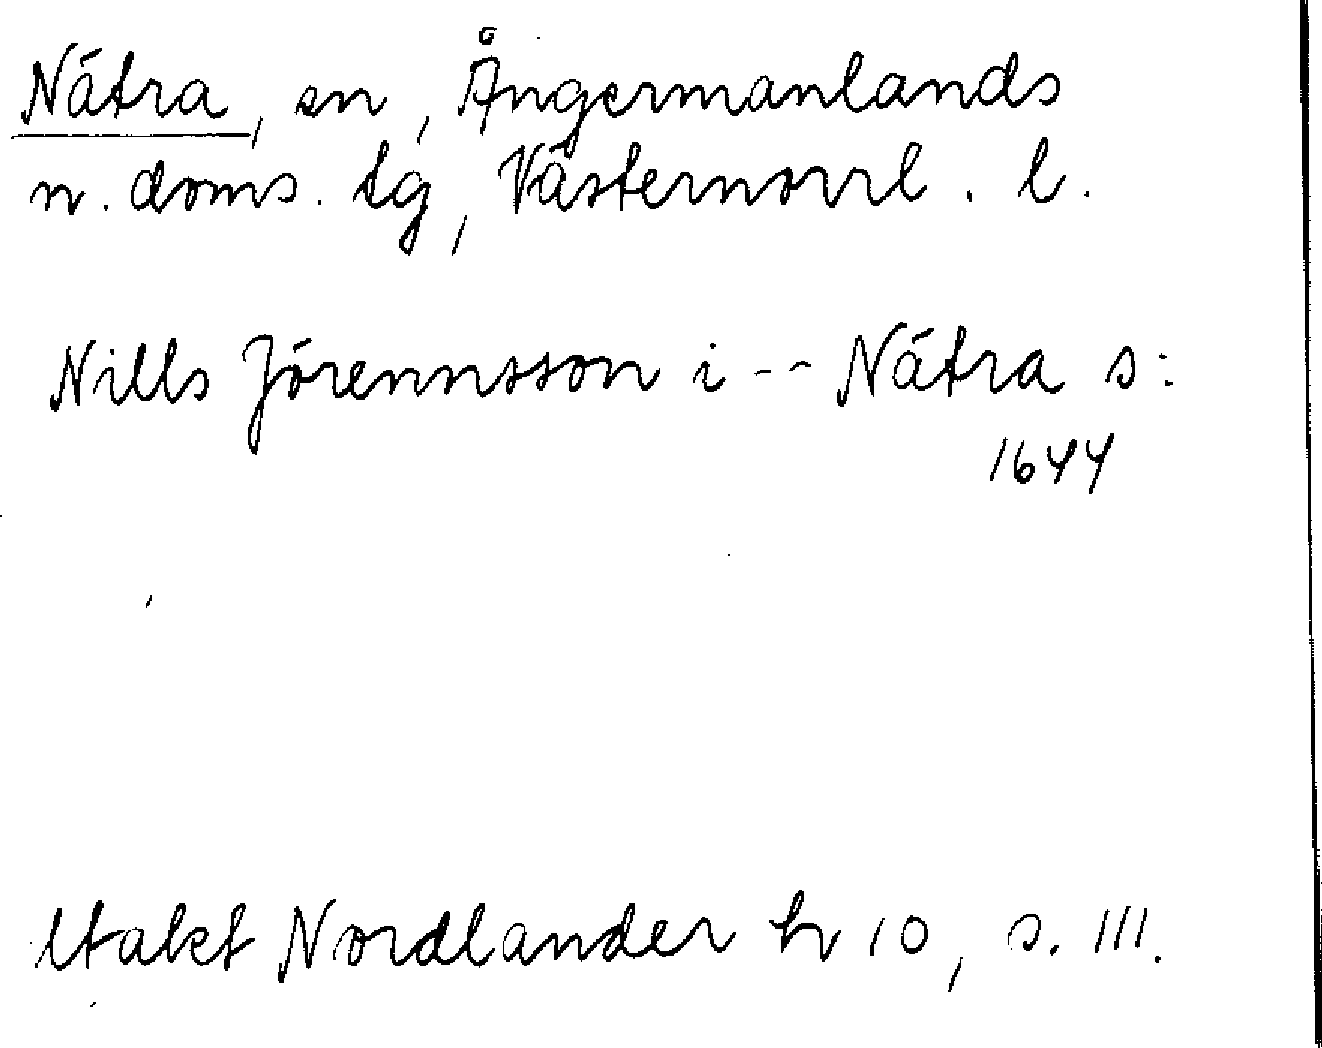 Nätra, sn, Ångermanlands
n. doms. tg, Västernorrl. l.
Nills Jörennsson i -- Nätra s:
1644
Utakt Nordlander hr 10, s. 111.